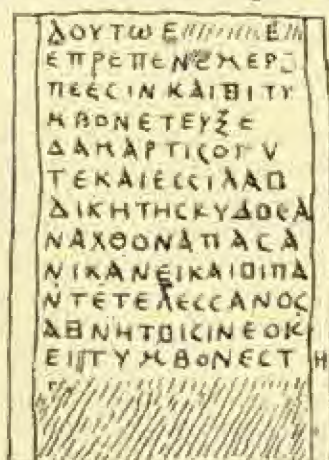 ΔΟΥΤΩΕ Ε
ΕΠΡΕΠΕΝΣΜΕΡ
ΠΕΕCΙΝΚΑΙΒΙΤΥ
ΜΒΟΝΕΤΕΥΞΕ
ΔΑΜΑΡΤΙCΟΓV
ΤΕΚΑΙΕCCΙΛΑΠ
ΔΙΚΗΤΗCΚΥΔΟCΑ
ΝΑΧΘΟΝΑΠΑCΑ
ΝΙΚΑΝΕΙΚΑΙΒΙΠΑ
ΝΤΕΤΕΛΕCCΑΝΟC
ΑΒΝΗΤΒΙCΙΝΕΟΚ
ΕΙ ΤΥΜΒΟΝΕCΤΗ